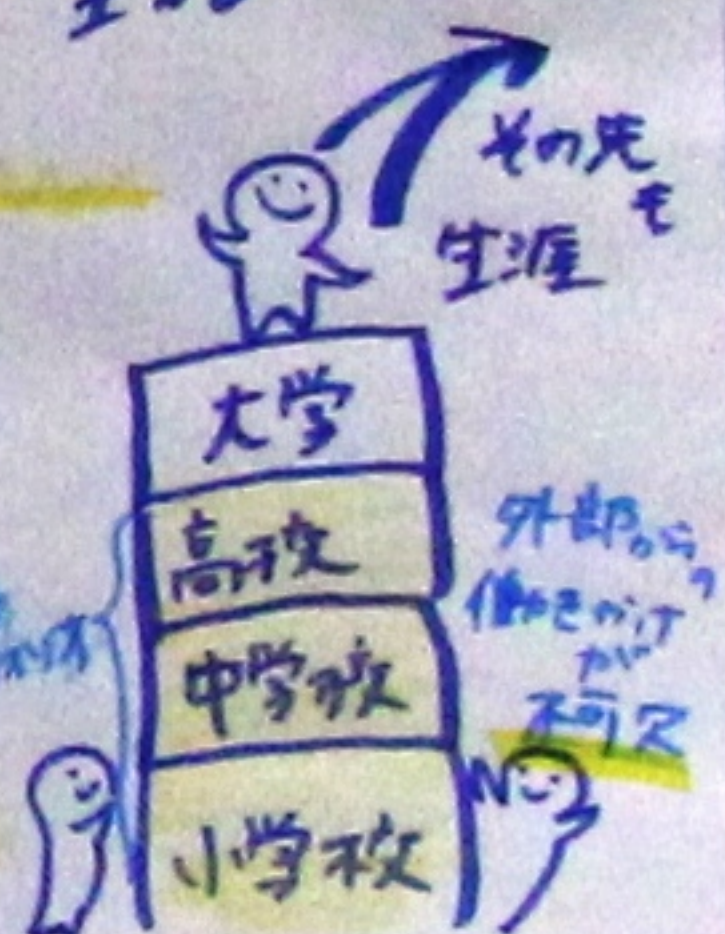 その先
も
生涯
大学
高校
中学校
小学校
外部からの
働きかけ
が
不可欠